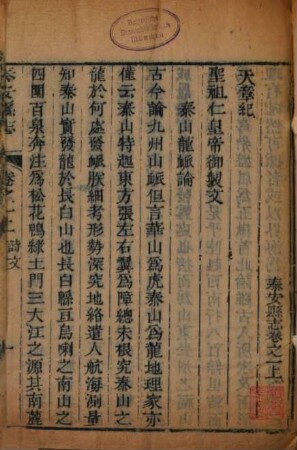 泰安縣志卷之一上
天章紀
聖祖仁皇帝御製文
泰山龍脈論
古今論九州山脈但言華山為虎泰山為龍地理家亦
僅云泰山特起東方張左右翼為障總未根究泰山之
龍於何處發脈朕細考形勢深究地絡遣人航海測量
知泰山實發龍於長白山也長白綿亘烏喇之南山之
四圍百泉奔注為松花鴨綠土門三大江之源其南麓
泰安縣志
卷之一上
詩文